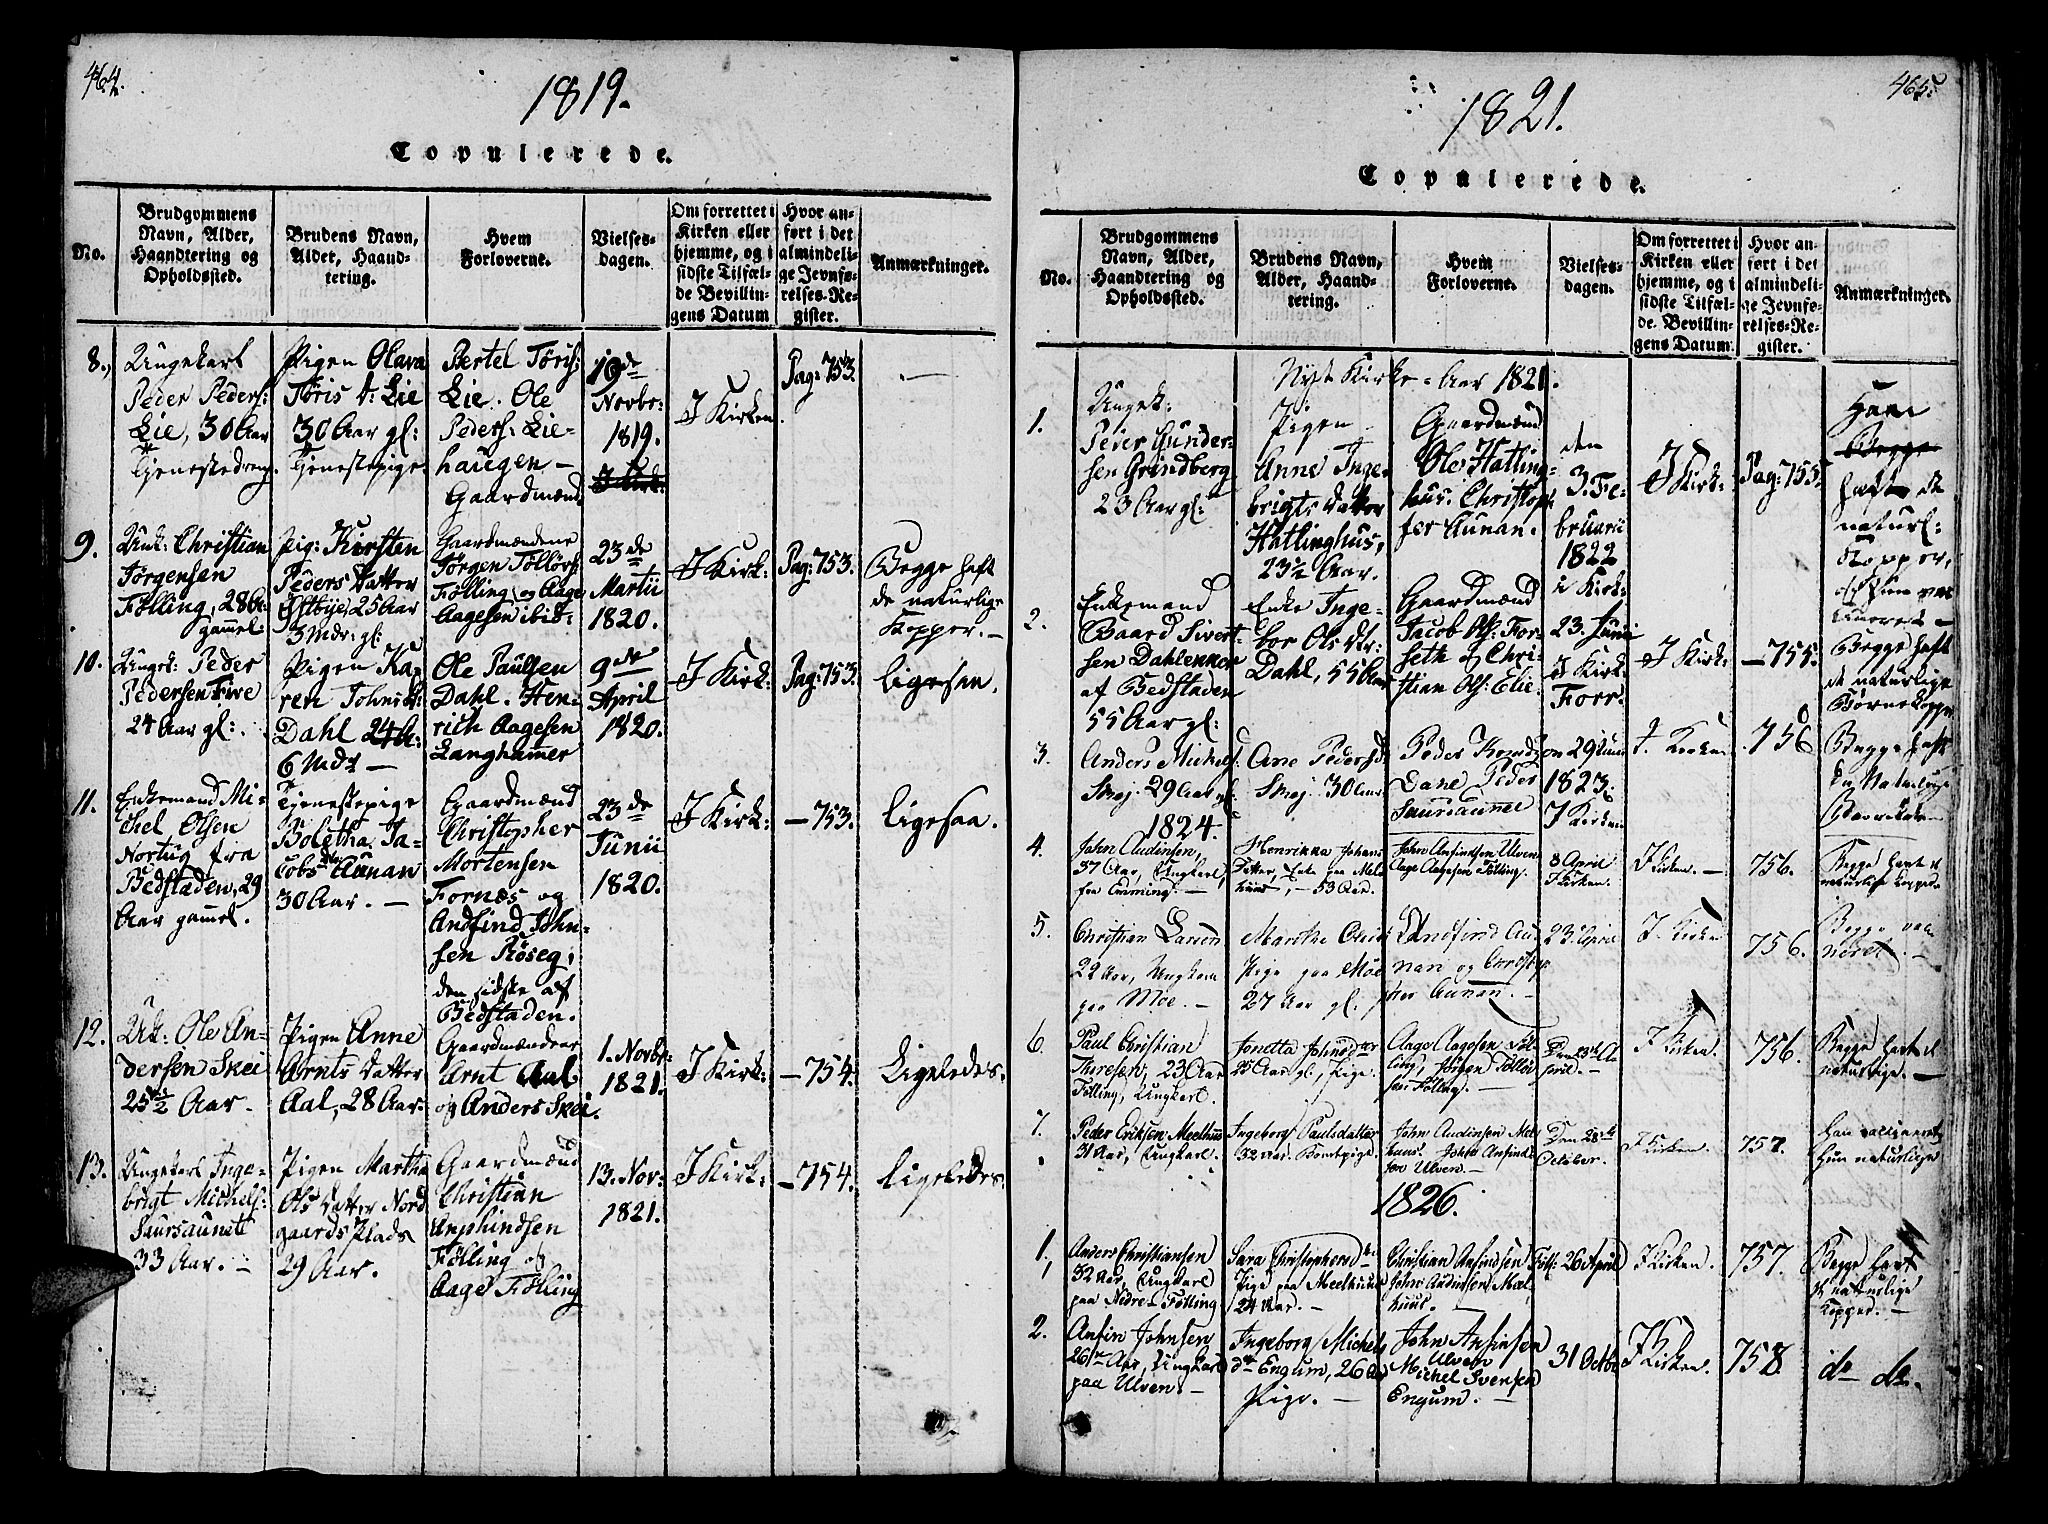 464.
1819.
Copulerede.
No.
Brudgommens Navn, Alder, Haandtering og Opholdssted.
Brudens Navn, Alder, Haandtering.
Hvem Forloverne.
Vielsesdagen.
Om forrettet i Kirken eller hjemme, og i sidste Tilfælde Bevillingens Datum
Hvor anført i det almindelige Jevnførelses-Register.
Anmærkninger.
8.,
Ungekarl
Peder Peders:
Lie, 30 Aar
Tjenestedreng.
Pigen Olava
Tøris d: Lie
30 Aar gl:
Tjenestepige.
Bertel Töris:
Lie. Ole
Peders: Lie-
haugen –
Gaardmænd.
19de
Novbr:
1819.
I Kirk:
I Kirken.
Pag: 753.
9.
Unk: Christian
Jørgensen
Følling, 28 Aar
gammel:
Pig: Kirsten
Peders Datter
Østbye, 25 Aar
3 Mdr: gl:
Gaardmændene
Jørgen Tölløvs:
Følling og Aage
Aagesen ibid:
23de
Martii
1820.
I Kirk:
Pag: 753.
Begge haft
de naturlige
Kopper. –
10.
Ungk: Peder
Pedersen Five
24 Aar gl:
Pigen Ka-
ren Johns d:
Dahl 24 A:
6 Mdr –
Ole Paulsen
Dahl. Hen-
rich Aagesen
Langhamer
9de
April
1820.
I Kirk:
Pag: 753.
ligesaa.
11.
Enkemand Mi-
chel Olsen
Nortug fra
Bedstaden, 29
Aar gamel.
Tjenestepige
Boletha Ja-
cobs dtr Aunan
30 Aar. –
Gaardmænd
Christopher
Mortensen
Fornæs og
Andfind John-
sen Röseg,
den sidste af
Bedstaden.
23de
Junii
1820.
I Kirk:
– 753.
ligesaa.
12.
Uk: Ole An-
dersen Skei
25½ Aar.
Pigen Anne
Arnts Datter
Aal, 28 Aar.
Gaardmændene
Arnt Aal
og Anders Skei.
1. Novbr:
1821.
I Kirk:
– 754.
Ligeledes.
13.
Ungekarl Inge-
brigt Michels:
Saursaunet
33 Aar. –
Pigen Martha
Ols Datter Nord
gaards Plads
29 Aar.
Gaardmænd
Christian
Anphindsen
Følling og
Aage Følling
13. Nov:
1821.
I Kirk:
– 754.
ligeledes.
465.
1821.
Copulerede.
No.
Brudgommens Navn, Alder, Haandtering og Opholdssted.
Brudens Navn, Alder, Haandtering.
Hvem Forloverne.
Vielsesdagen.
Om forrettet i Kirken eller hjemme, og i sidste Tilfælde Bevillingens Datum.
Hvor anført i det almindelige Jevnførelses-Register.
Anmærkninger.
Nyt Kirke-Aar 1821.
1.
Ungek:
Peder Gunder-
sen Grindberg
23 Aar gl:
Pigen
Anne Inge-
brigts Datter
Hallinghus,
23½ Aar.
Gaardmænd
Ole Hatling-
hus. Christop-
fer Aunan.
den
3. Fe-
bruarii
1822
i Kirk:
I Kirk:
Pag: 755.
Han
Begge
haft de
naturl:
Kopper,
og hun var
vaccnet –
2.
Enkemand
Baard Sivert-
sen Dahlenkon
af Bedstaden
55 Aar gl:
Enke Inge-
bor Ols Dtr:
Dahl, 55 Aar
Gaardmænd
Jacob Ols: For-
seth og Chri-
stian Ols: Elie
23. Junii
I Kirk:
Forr.
I Kirk:
– 755.
Begge haft
de naturlige
Børnekopper
3.
Anders Michels:
Smaj. 29 Aar gl:
Ane Pedersd
Smaj. 30 Aar
Peder
Dane Peder
Saursaunet
29 Juni
1823.
I Kirken
I. Kirken
756
Begge haft
de Naturlige
1824.
4.
John Audinsen,
37 Aar, Ungkarl,
fra Emming. –
Henrikka Johans
Datter, Enke paa Meel-
huus, – 53 Aar.
John Ansindsen Ulven
Aage Aagesen Følling.
8 April
I Kirken.
I Kirken. –
756.
Begge havt de
naturlige Kopper
5.
Christian Larsen
29 Aar, Ungkarl
paa Moe. –
Marthe Olsd:
Pige paa Moe
27 Aar gl:
Andfind Au-
nan og Christop-
her Aunan. –
23. April
I. Kirken
756.
Begge vac-
cineret. –
6.
Paul Christian
Thoresen, 23 Aar
Følling, Ungkarl.
Jonetta Johnsdtr
25 Aar gl, Pige.
Aage Aagesen Föl-
ling, Jörgen Töllev-
sen Følling.
Den 23de A-
pril.
I Kirken.
756.
Begge havt de
naturlige. –
7.
Peder Eriksen Meelhuus
31 Aar, Ungkarl.
Ingeborg Paulsdatter
32 Aar. Bondepige.
John Audinsen Mel-
huus. John Ansind-
sen Ulven. –
Den 28de
October.
I Kirken.
757.
Han vaccineret
hun naturlige
1826.
1,
Anders Christiansen
32 Aar, Ungkarl
paa Nedre-Følling
Sara Christophers dtr
Pige paa Meelhuus
24 Aar. –
Christian Ansindsen Föll:
John Audinsen Meel-
huus. –
26 April
I Kirken.
757.
Begge havt
de naturlige
Kopper. –
2.
Ansin Johnsen
26 Aar, Ungkarl
paa Ulven. –
Ingeborg Michels
dtr Engum, 26 Aar
Pige. –
John Ansinsen
Ulven
Michel Svensen
Engum. –
31 Octbr
I Kirken.
758
do do.